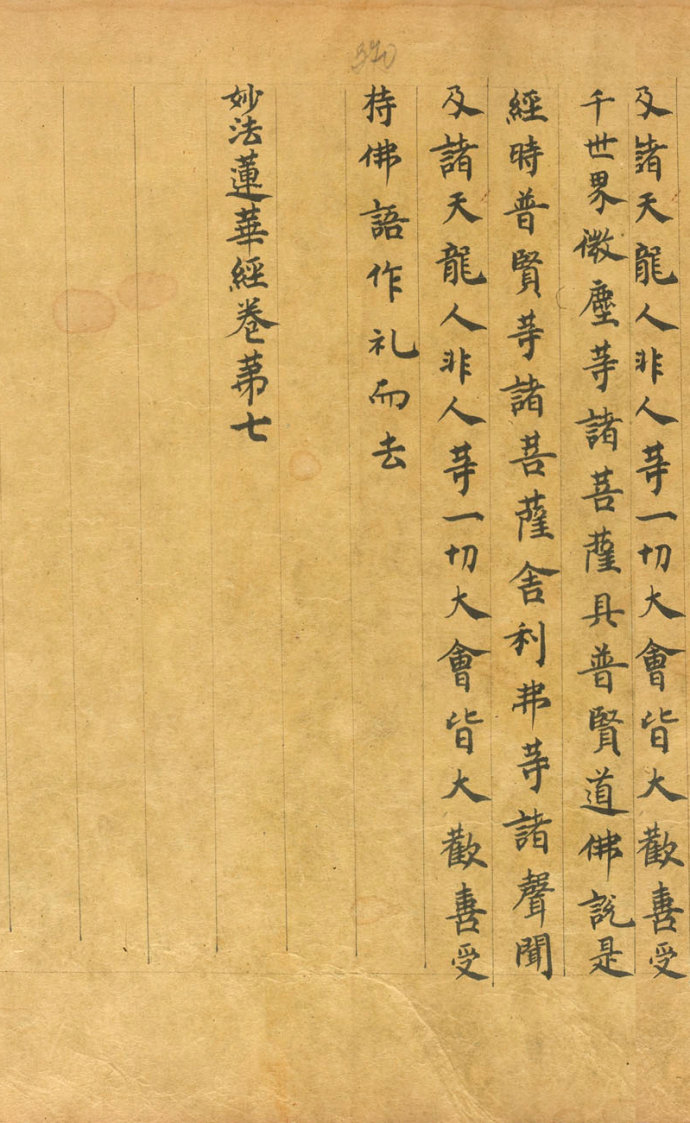 及諸天龍人非人等一切大會皆大歡喜受
千世界微塵等諸菩薩具普賢道佛說是
經時普賢等諸菩薩舍利弗等諸聲聞
及諸天龍人非人等一切大會皆大歡喜受
持佛語作礼而去
妙法蓮華經卷第七